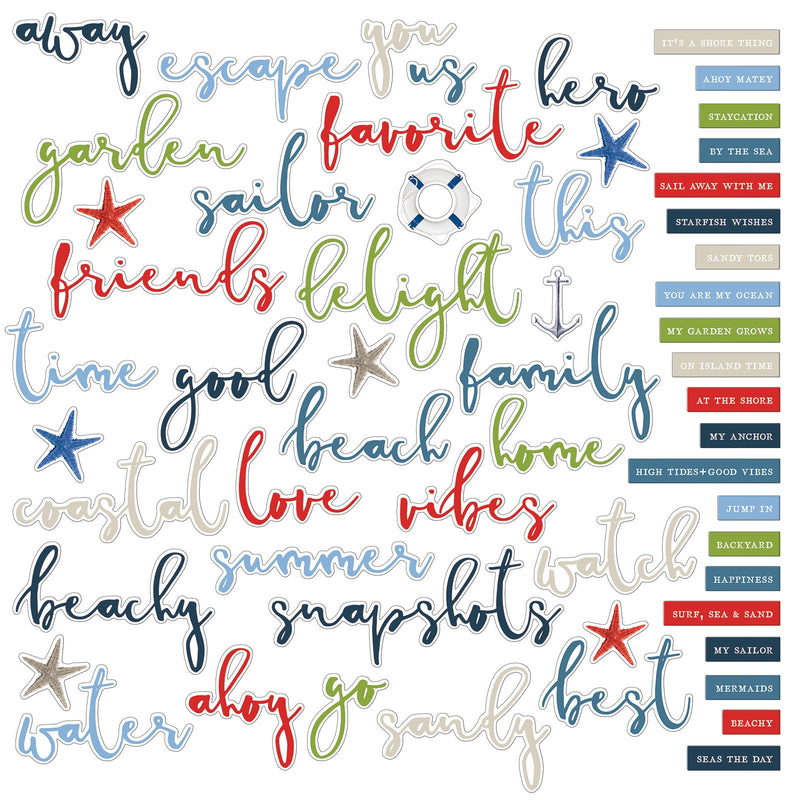 away
you
escape
us
hero
garden
favorite
sailor
this
friends
delight
time
good
family
beach
home
coastal
love
vibes
summer
watch
beachy
snapshots
best
water
ahoy
go
sandy
IT'S A SHORE THING
AHOY MATEY
STAYCATION
BY THE SEA
SAIL AWAY WITH ME
STARFISH WISHES
SANDY TOES
YOU ARE MY OCEAN
MY GARDEN GROWS
ON ISLAND TIME
AT THE SHORE
MY ANCHOR
HIGH TIDES+GOOD VIBES
JUMP IN
BACKYARD
HAPPINESS
SURF, SEA & SAND
MY SAILOR
MERMAIDS
BEACHY
SEAS THE DAY